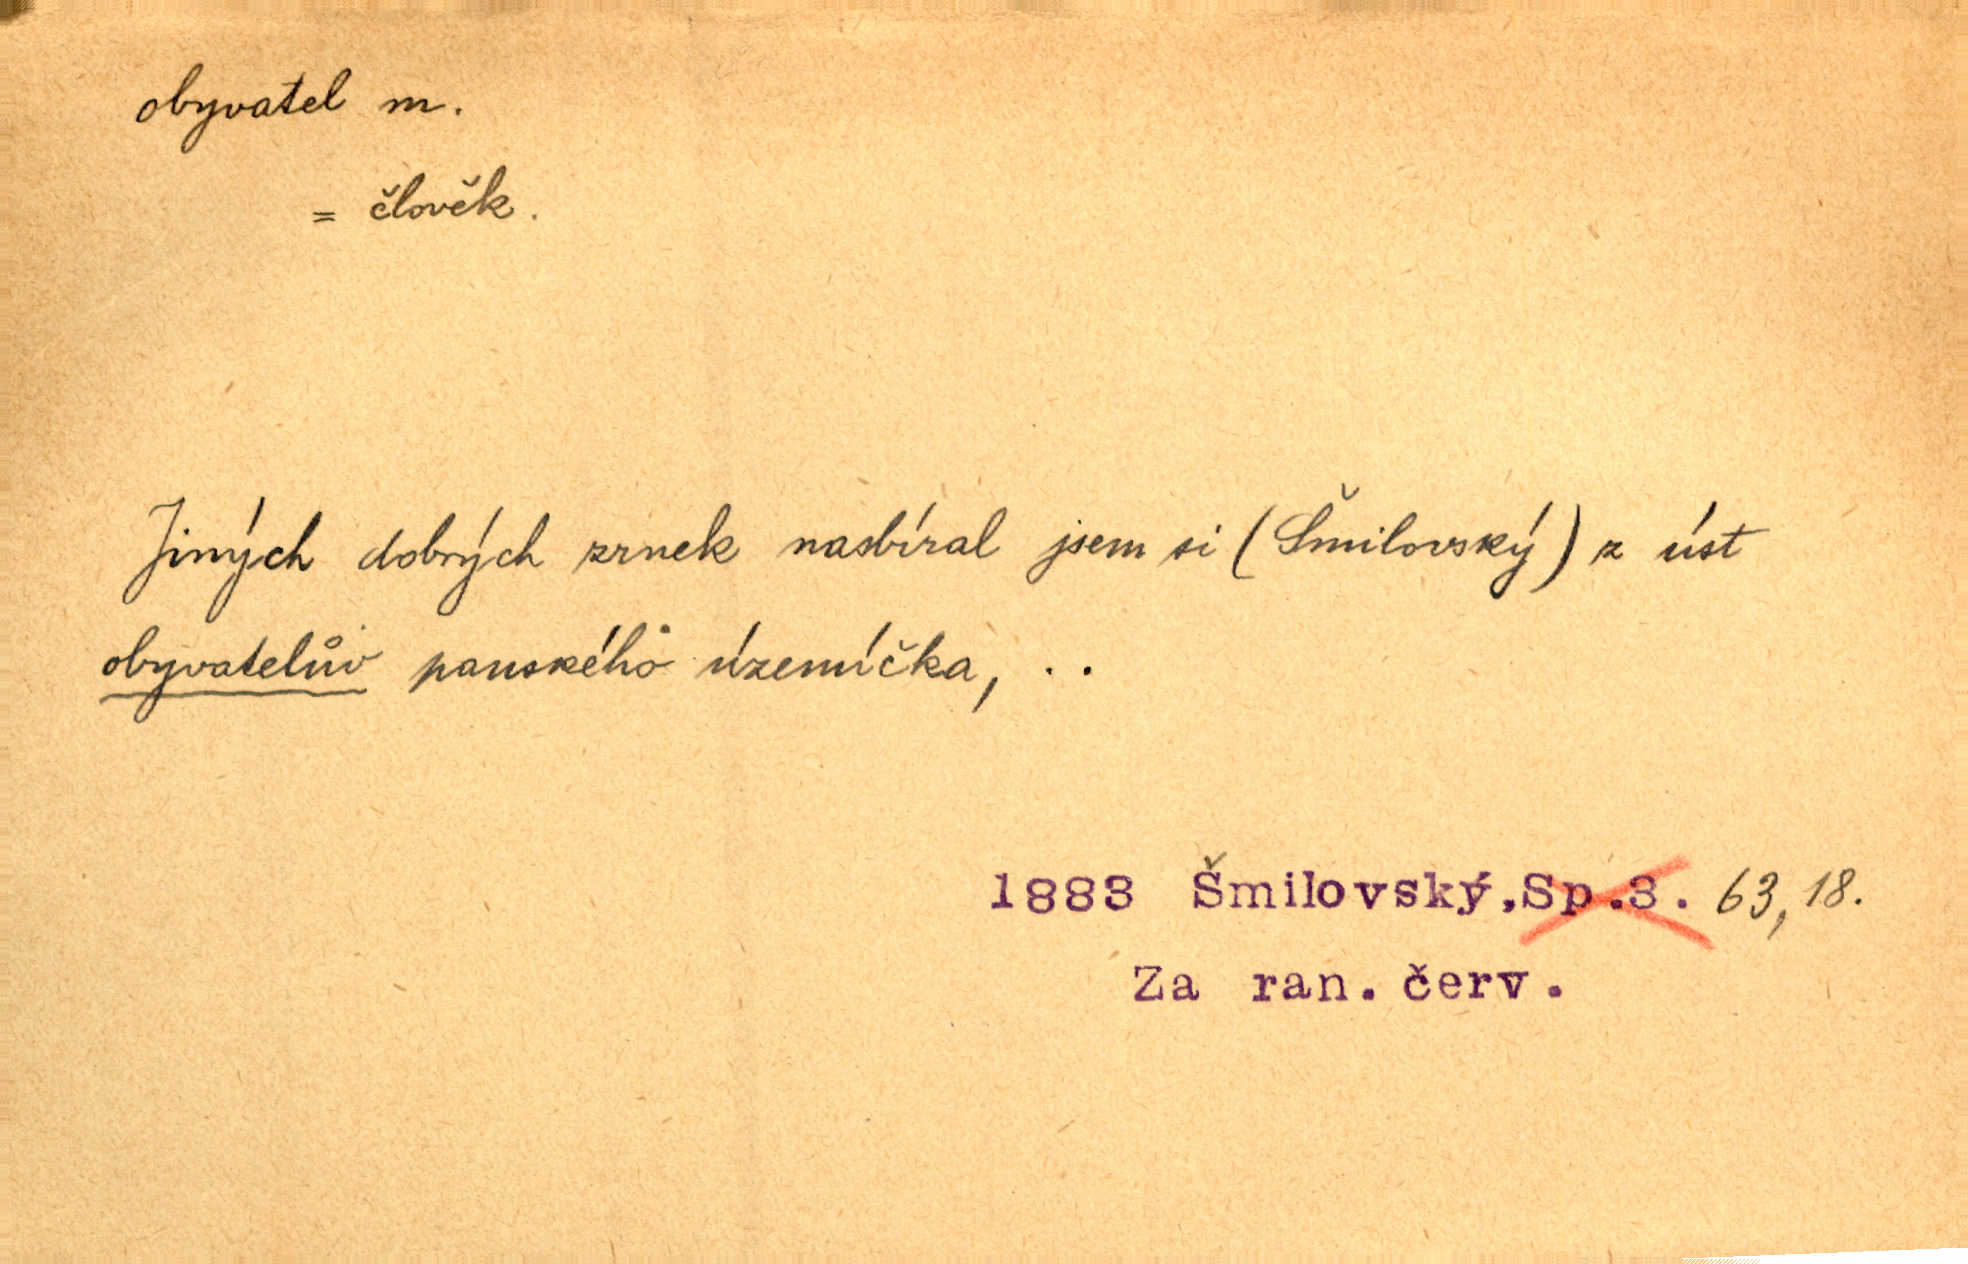 obyvatel m.
= člověk.
Jiných dobrých zrnek nasbíral jsem si (Šmilovský) z úst
obyvatelův panského územíčka, . .
1883 Šmilovský,Sp.3. 63,18.
Za ran. červ.